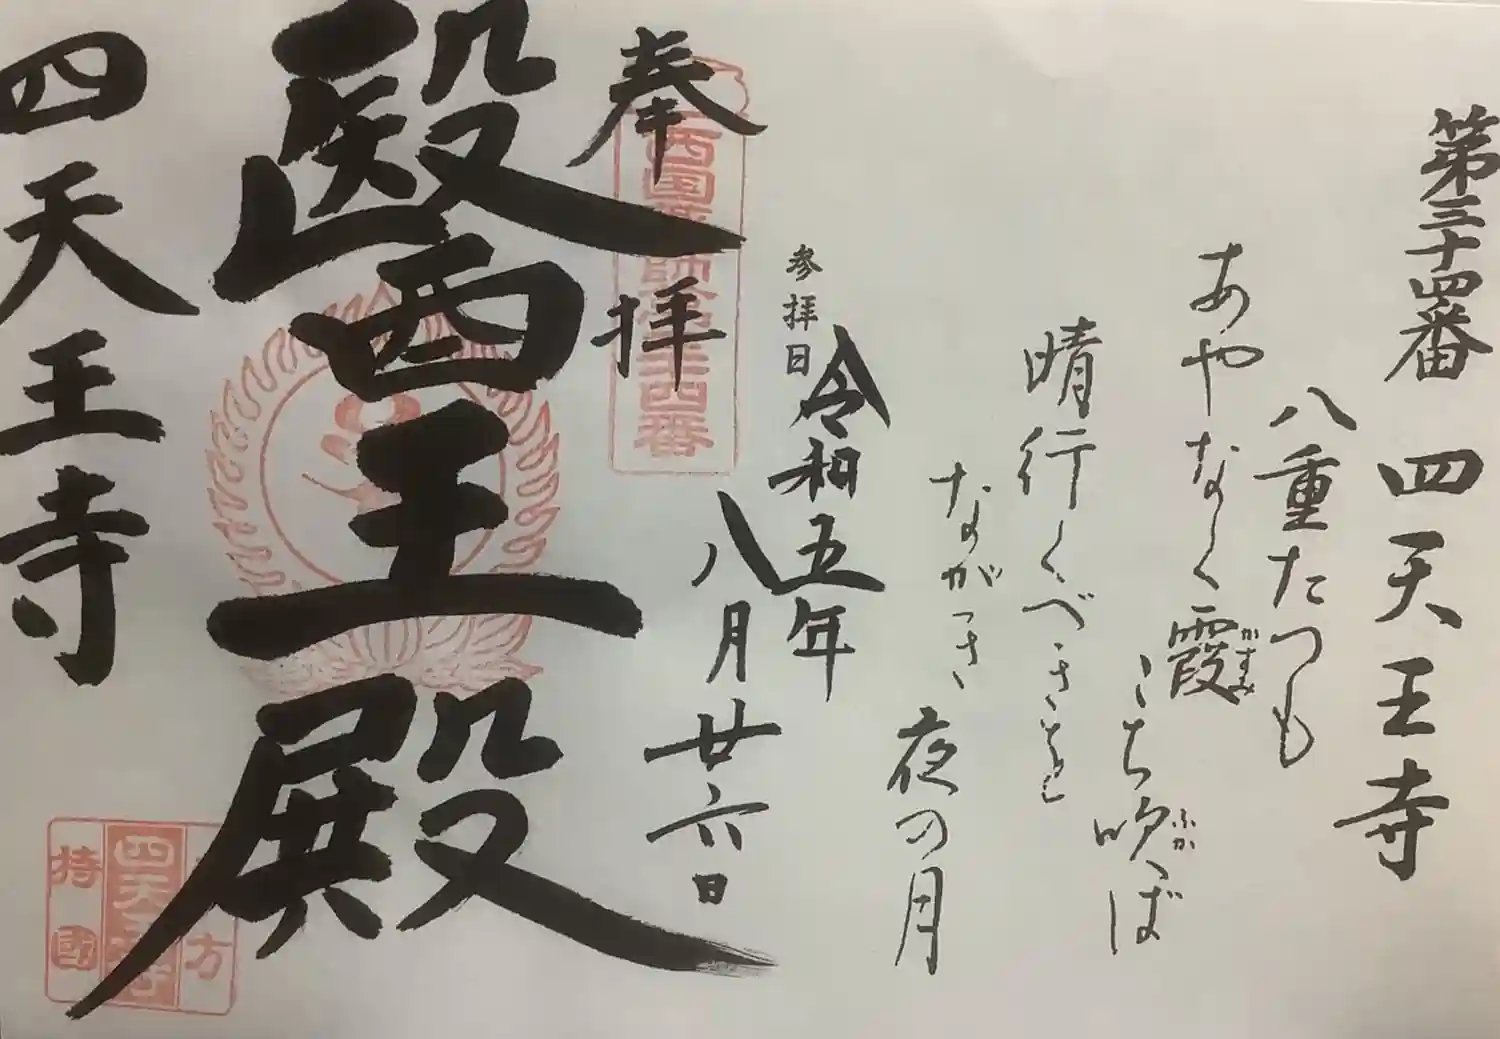 第三十四番 四天王寺
八重たつも
あやなく霞
かすみ
こち吹ば
ふか
晴行くべきを
ながき
夜の月
参拝日
令和五年
八月廿六日
奉拝
西国薬師第三十四番
醫王殿
四天王寺
方
四天王寺
持國